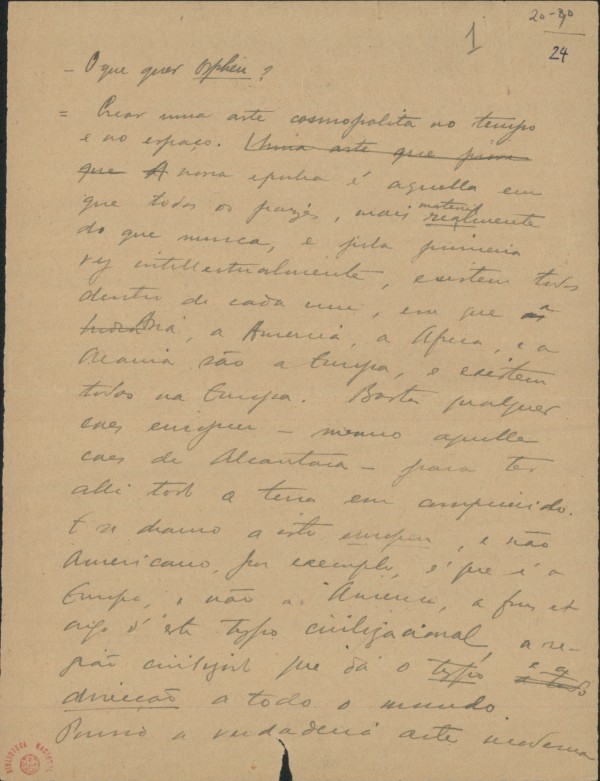 1
20-80
24
– O que quer Orpheu?
= Crear uma arte cosmopolita no tempo
e no espaço. Uma arte que
que A nossa epocha é aquella em
que todos os paizes, mais materialmente realmente
do que nunca, e pela primeira
vez intellectualmente, existem todos
dentro de cada um, em que a
Asia, a America, a Africa, e a
Oceania são a Europa, e existem
todos na Europa. Basta qualquer
caes europeu – mesmo aquelle
caes de Alcantara – para ter
alli toda a terra em comprimido.
E se chamo a isto europeu, e não
americano, por exemplo, é que é a
Europa, e não a America, a fons et
origo d'este typo civilizacional, a re-
gião civilizada que dá o typo e a
direcção a todo o mundo.
Porisso a verdadeira arte moderna
BIBLIOTECA NACIONAL